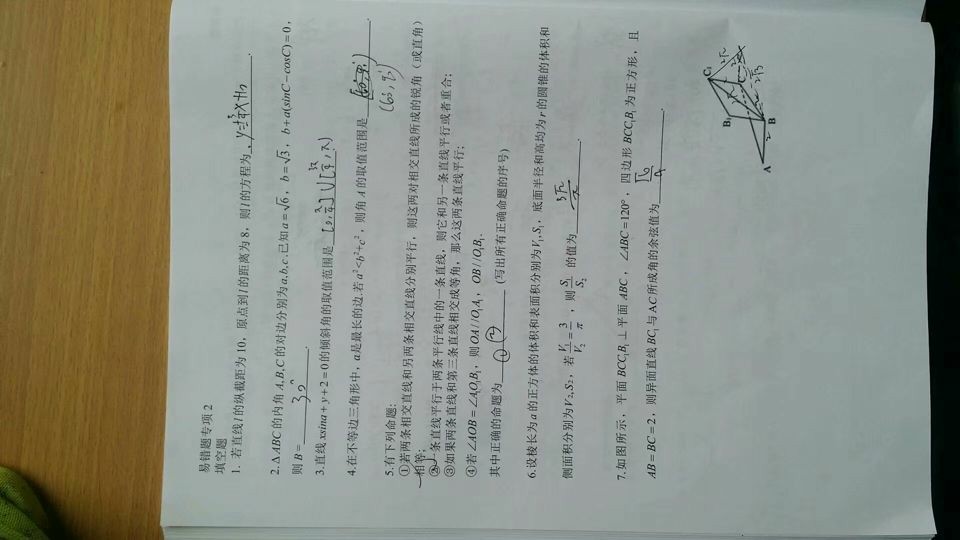 易错题专项 2
填空题
1. 若直线l的纵截距为 10, 原点到l的距离为 8, 则l的方程为 y=±¾x+10 .
2.ΔABC的内角A,B,C的对边分别为a,b,c.已知a=√6, b=√3, b+a(sinC−cosC)=0,
则B= 30° .
3.直线xsina+y+2=0的倾斜角的取值范围是
4.在不等边三角形中, a是最长的边.若a²<b²+c², 则角A的取值范围是 (60°, 90°) .
(60°, 90°)
5.有下列命题:
①若两条相交直线和另两条相交直线分别平行, 则这两对相交直线所成的锐角 (或直角)
相等;
②一条直线平行于两条平行线中的一条直线, 则它和另一条直线平行或者重合;
③如果两条直线和第三条直线相交成等角, 那么这两条直线平行;
④若∠AOB=∠A₁O₁B₁, 则OA//O₁A₁, OB//O₁B₁.
其中正确的命题为 ①② (写出所有正确命题的序号)
6.设棱长为a的正方体的体积和表面积分别为V₁,S₁, 底面半径和高均为r的圆锥的体积和
侧面积分别为V₂,S₂, 若V₁/V₂=3/π, 则S₁/S₂的值为 3√2/π .
7.如图所示, 平面BCC₁B₁⊥平面ABC, ∠ABC=120°, 四边形BCC₁B₁为正方形, 且
AB=BC=2, 则异面直线BC₁与AC所成角的余弦值为 √6/4 .
C₁
B₁
C
B
A
2
2√3